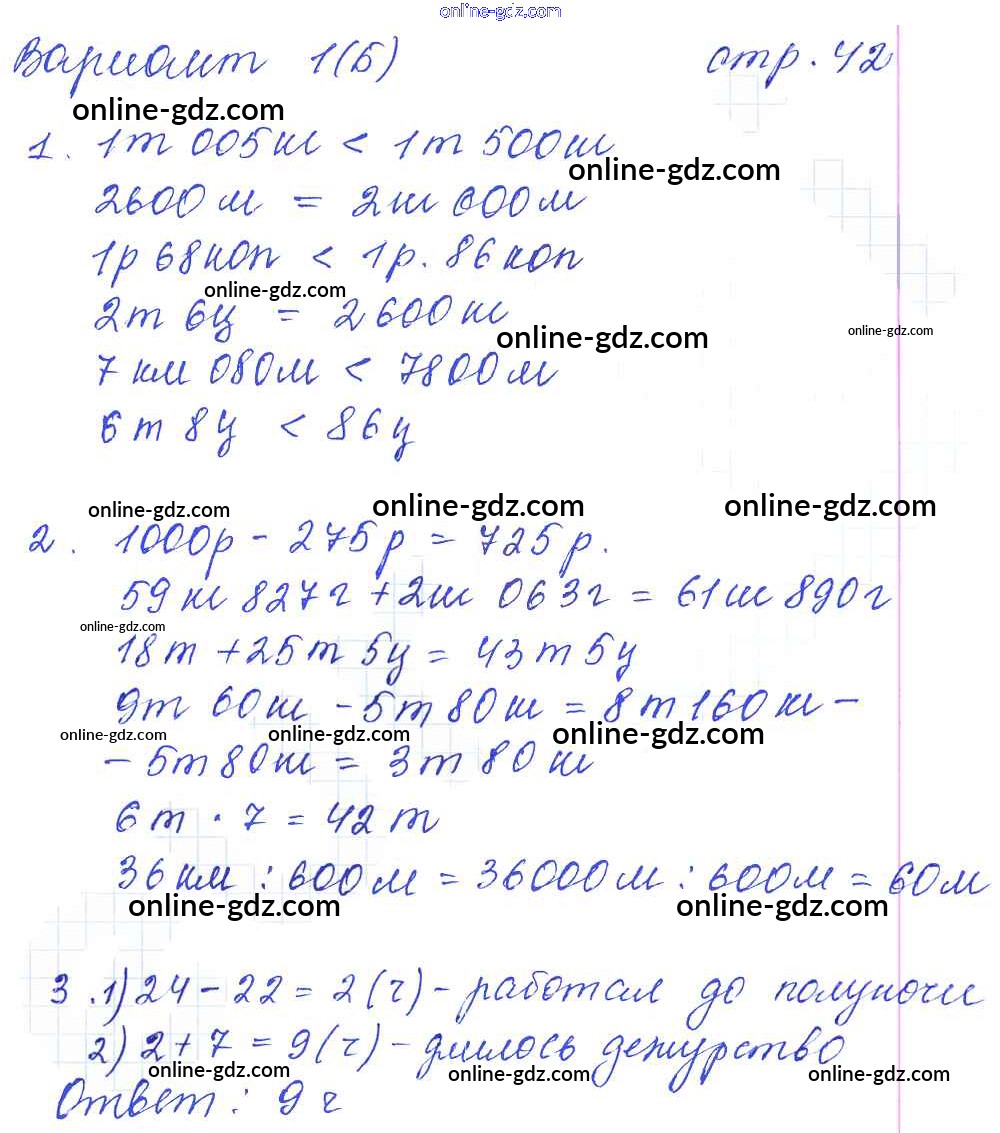 online-gdz.com
Вариант 1(Б) стр. 42
online-gdz.com
1. 1т 005кг < 1т 500кг
online-gdz.com
2600 м = 2км 600м
1р 68коп < 1р. 86коп
online-gdz.com
2т 6ц = 2600кг
online-gdz.com
online-gdz.com
7 км 080м < 7800м
6т 8ц < 86ц
online-gdz.com online-gdz.com online-gdz.com
2. 1000р - 275р = 725р.
59кг 827г + 2кг 063г = 61кг 890г
online-gdz.com
18т + 25т 5ц = 43т 5ц
9т 60кг - 5т 80кг = 8т 160кг -
online-gdz.com online-gdz.com online-gdz.com
- 5т 80кг = 3т 80кг
6т · 7 = 42т
36км : 600м = 36000м : 600м = 60м
online-gdz.com online-gdz.com
3. 1) 24 - 22 = 2 (ч) - работал до полуночи
2) 2 + 7 = 9 (ч) - длилось дежурство
online-gdz.com online-gdz.com online-gdz.com
Ответ: 9 ч